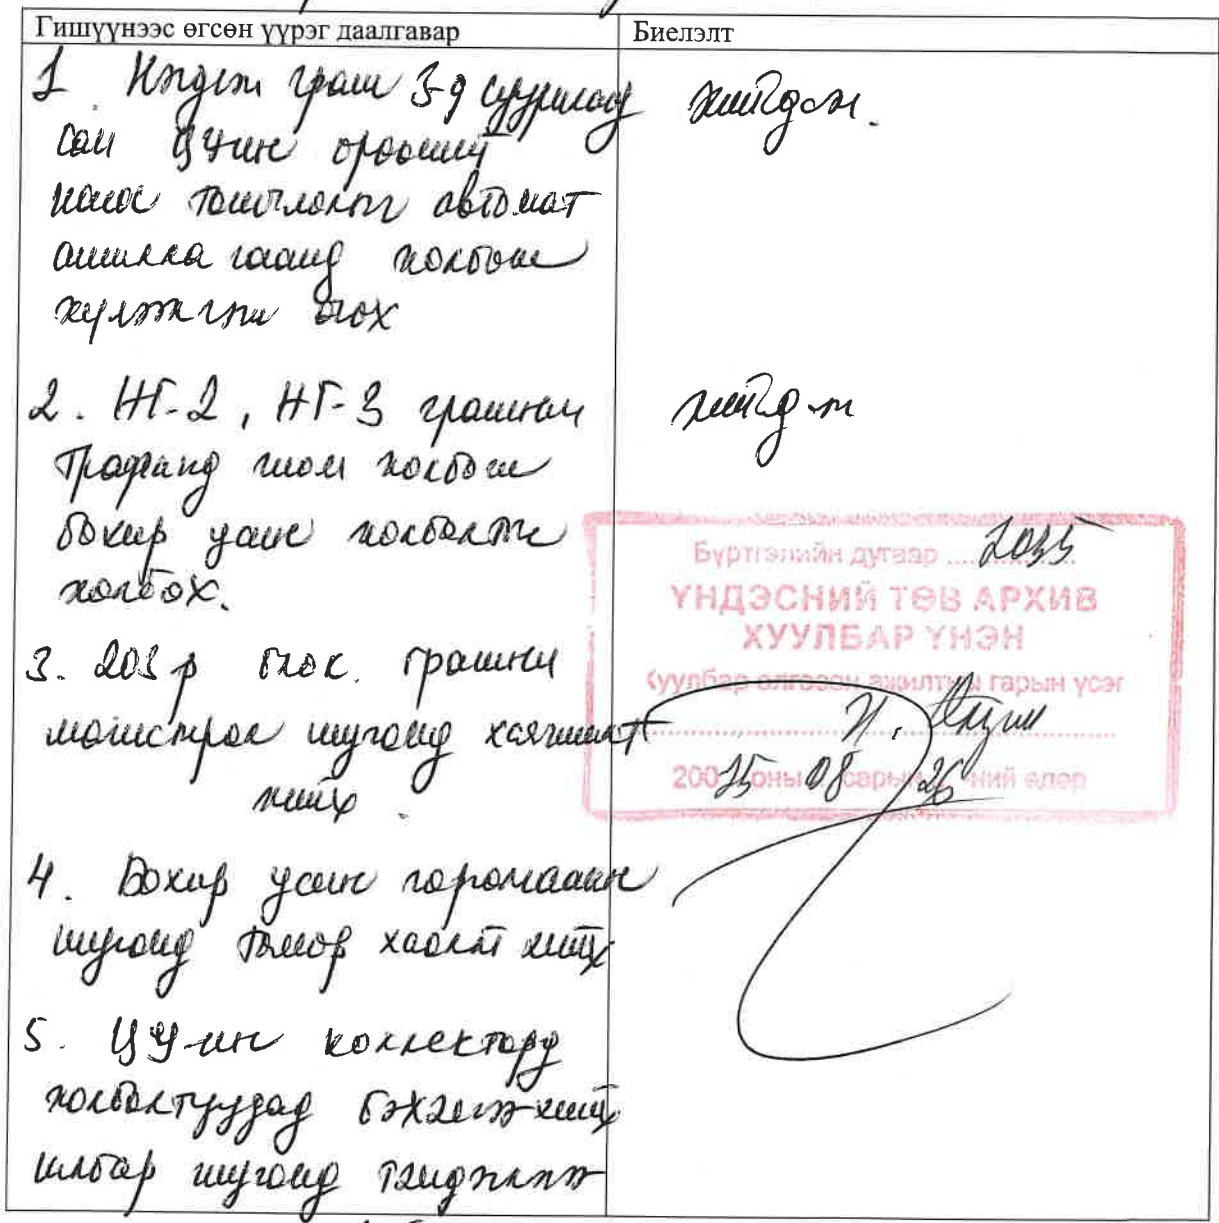 Гишүүнээс өгсөн үүрэг даалгавар
Биелэлт
1. граш 3-д суурилагд
сан ЦУ-ин өрөөний
насос тоноглолыг автомат
ажиллагаанд холбож
хүлээлгэн өгөх
хийгдсэн.
2. НГ-2, НГ-3 грашны
Трапанд гном холбож
бохир усны холболтыг
холбох.
хийгдсэн
3. 203 р блок. грашны
магистрал шугамд хаягжилт
хийх.
4. Бохир усны гаралгааны
шугамд төмөр хаалт хийх
5. ЦУ-ын коллекторд
холболтуудад бэхэлгээ хийх
салбар шугамд тэмдэглэгээ
Бүртгэлийн дугаар .... 2035
ҮНДЭСНИЙ ТӨВ АРХИВ
ХУУЛБАР ҮНЭН
Хуулбар олгосон ажилтны гарын үсэг
200 25 оны 08 сарын 26 -ний өдөр